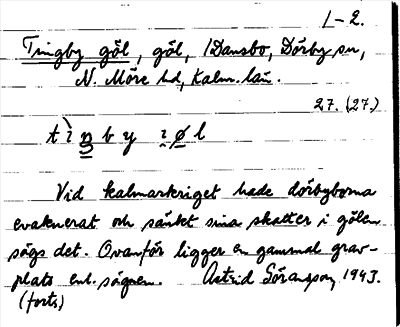 1-2.
Tingby göl, göl, /Dansbo, Dörby sn,
N. Möre hd, Kalm. län.
27. (27.)
Vid kalmarkriget hade dörbyborna
evakuerat och sänket sina skatter i gölen
sägs det. Ovanför ligger en gammal grav-
plats enl. sägnen. Astrid Göransson, 1943.
(forts)